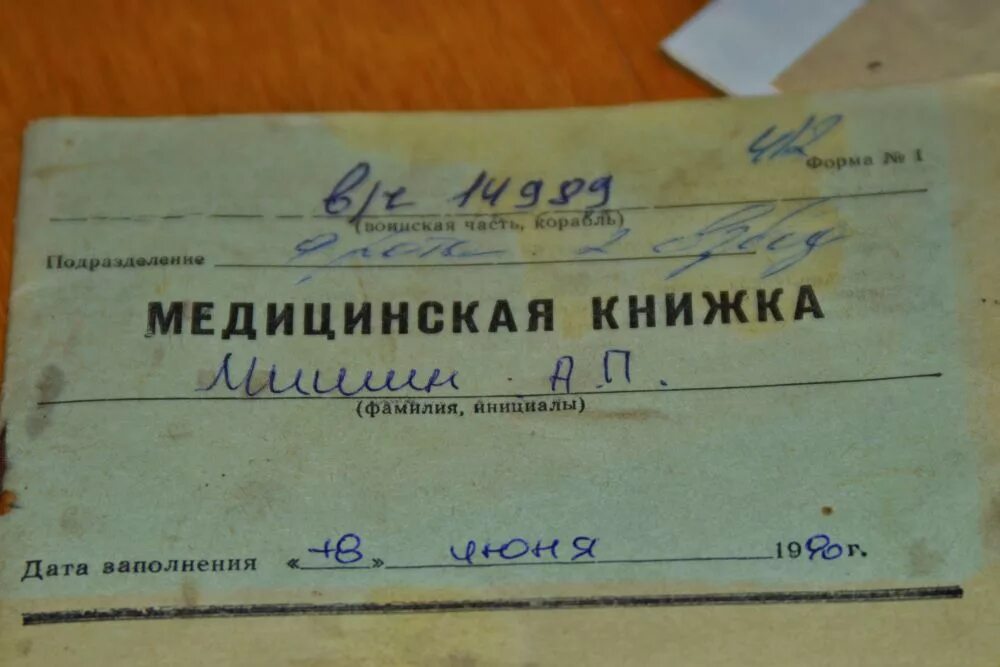 412
Форма № 1
в/ч 14989
(воинская часть, корабль)
Подразделение роты 2 взвод
МЕДИЦИНСКАЯ КНИЖКА
Мишин А.П.
(фамилия, инициалы)
Дата заполнения «18» июня 1990 г.